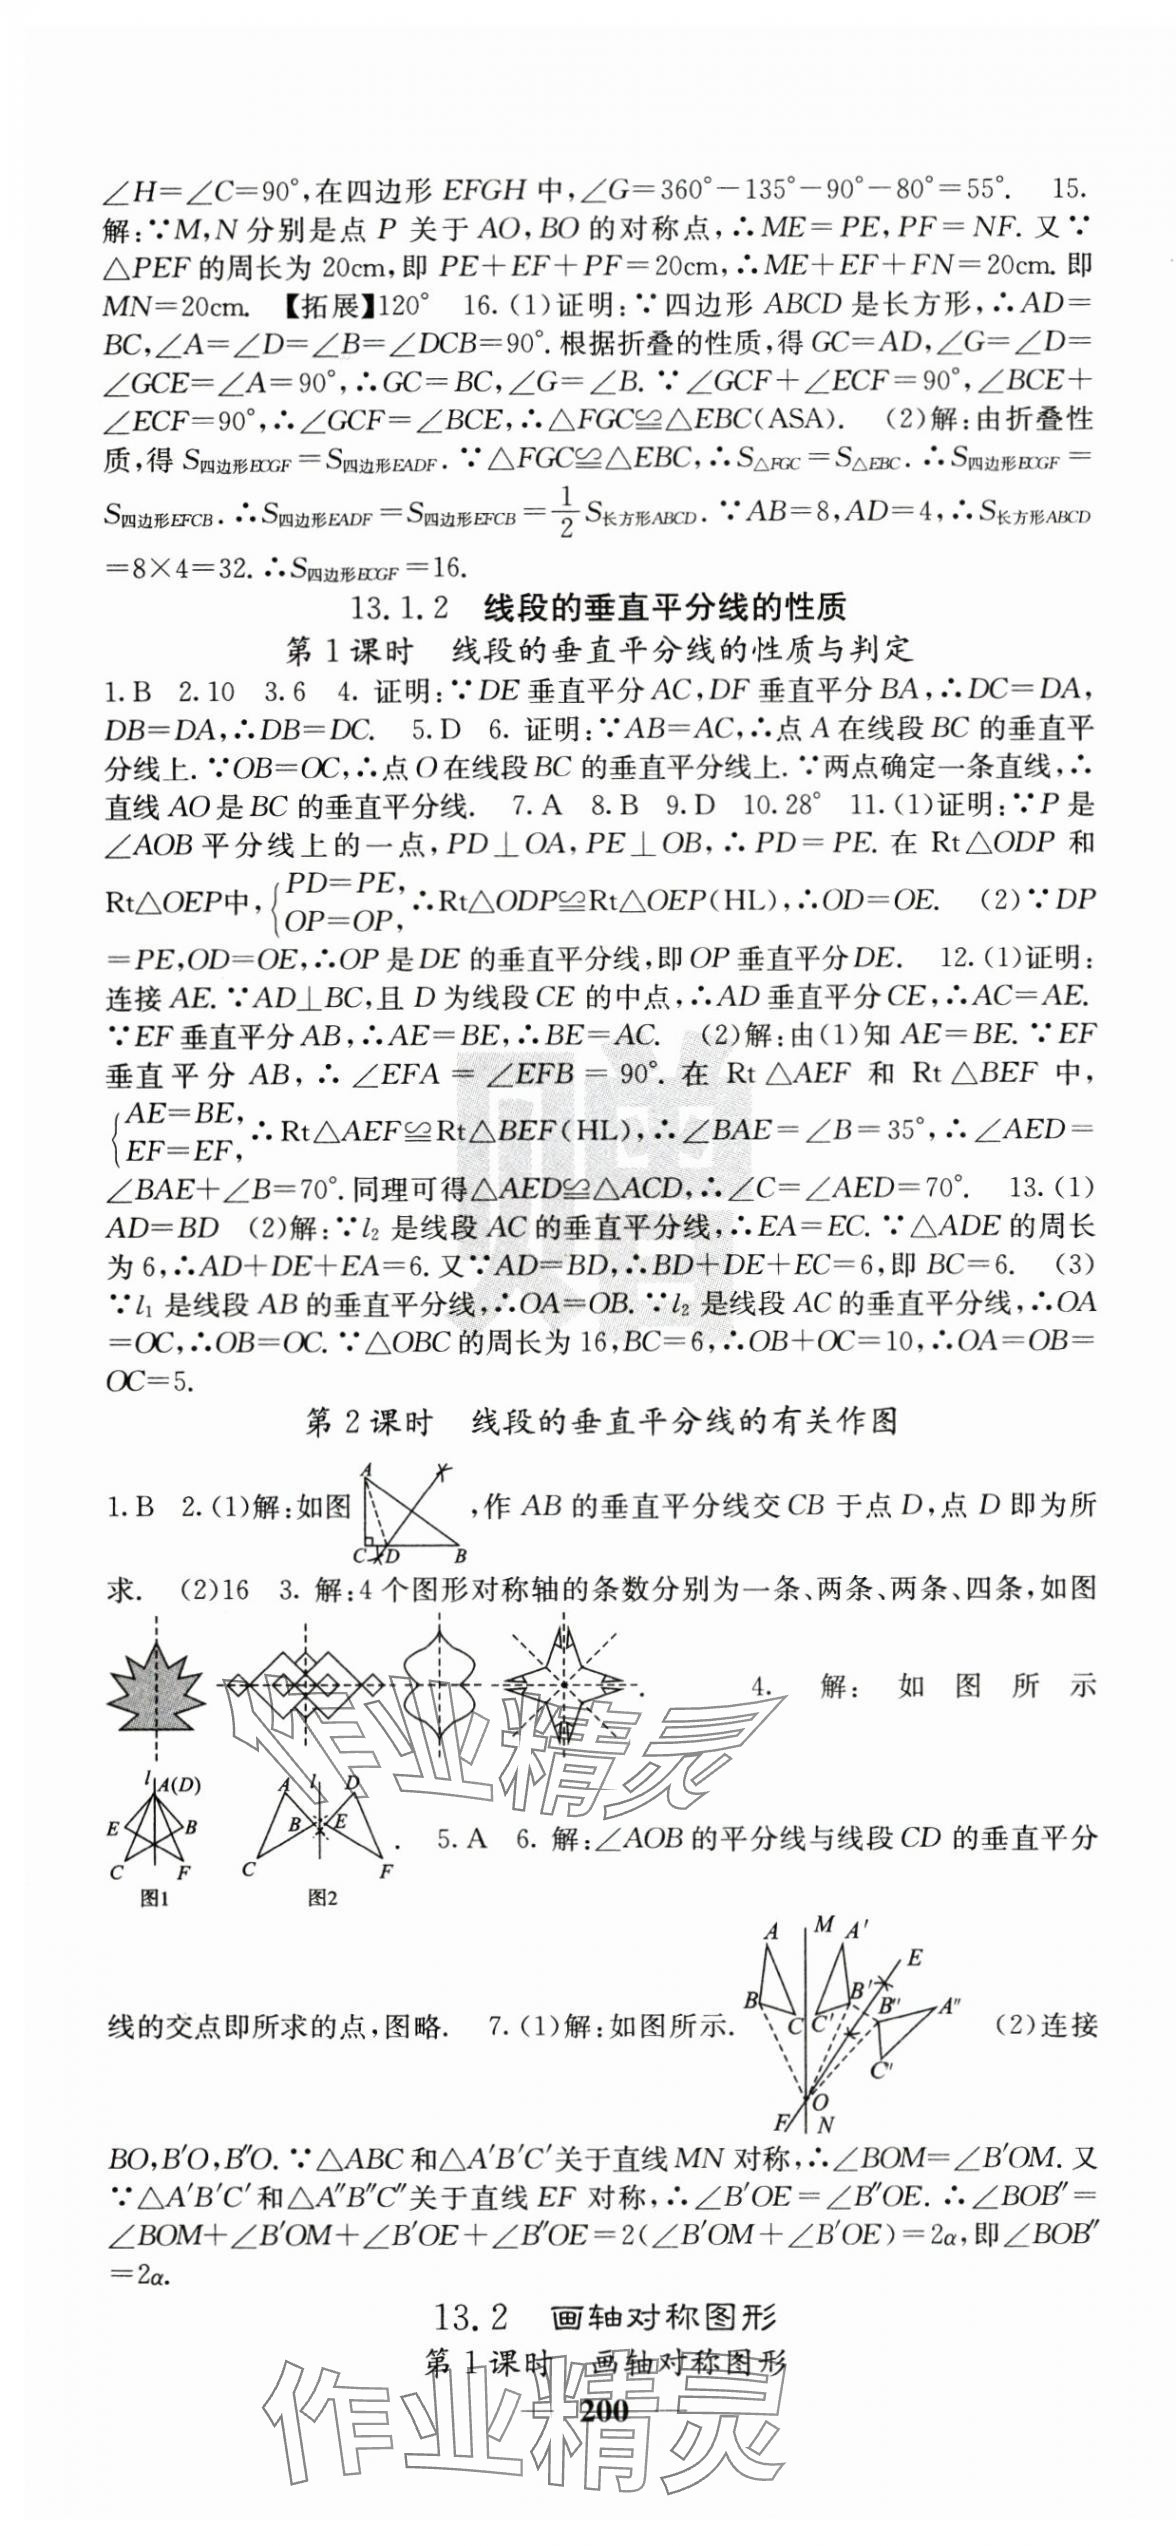 ∠H=∠C=90°,在四边形 EFGH 中,∠G=360°-135°-90°-80°=55°. 15.
解:∵M,N 分别是点 P 关于 AO,BO 的对称点,∴ME=PE,PF=NF. 又∵
△PEF 的周长为 20cm,即 PE+EF+PF=20cm,∴ME+EF+FN=20cm. 即
MN=20cm. 【拓展】120° 16.(1)证明:∵四边形 ABCD 是长方形,∴AD=
BC,∠A=∠D=∠B=∠DCB=90°. 根据折叠的性质,得 GC=AD,∠G=∠D=
∠GCE=∠A=90°,∴GC=BC,∠G=∠B. ∵∠GCF+∠ECF=90°,∠BCE+
∠ECF=90°,∴∠GCF=∠BCE,∴△FGC≌△EBC(ASA). (2)解:由折叠性
质,得 S四边形ECGF=S四边形EADF. ∵△FGC≌△EBC,∴S△FGC=S△EBC. ∴S四边形ECGF=
S四边形EFCB. ∴S四边形EADF=S四边形EFCB=1/2 S长方形ABCD. ∵AB=8,AD=4,∴S长方形ABCD
=8×4=32. ∴S四边形ECGF=16.
13.1.2 线段的垂直平分线的性质
第1课时 线段的垂直平分线的性质与判定
1.B 2.10 3.6 4. 证明:∵DE 垂直平分 AC,DF 垂直平分 BA,∴DC=DA,
DB=DA,∴DB=DC. 5.D 6. 证明:∵AB=AC,∴点 A 在线段 BC 的垂直平
分线上. ∵OB=OC,∴点 O 在线段 BC 的垂直平分线上. ∵两点确定一条直线,∴
直线 AO 是 BC 的垂直平分线. 7.A 8.B 9.D 10.28° 11.(1)证明:∵P 是
∠AOB 平分线上的一点,PD⊥OA,PE⊥OB,∴PD=PE. 在 Rt△ODP 和
Rt△OEP中,{PD=PE, OP=OP, ∴Rt△ODP≌Rt△OEP(HL),∴OD=OE. (2)∵DP
=PE,OD=OE,∴OP 是 DE 的垂直平分线,即 OP 垂直平分 DE. 12.(1)证明:
连接 AE. ∵AD⊥BC,且 D 为线段 CE 的中点,∴AD 垂直平分 CE,∴AC=AE.
∵EF 垂直平分 AB,∴AE=BE,∴BE=AC. (2)解:由(1)知 AE=BE. ∵EF
垂直平分 AB,∴∠EFA=∠EFB=90°. 在 Rt△AEF 和 Rt△BEF 中,
{AE=BE, EF=EF, ∴Rt△AEF≌Rt△BEF(HL),∴∠BAE=∠B=35°,∴∠AED=
∠BAE+∠B=70°. 同理可得△AED≌△ACD,∴∠C=∠AED=70°. 13.(1)
AD=BD (2)解:∵l₂ 是线段 AC 的垂直平分线,∴EA=EC. ∵△ADE 的周长
为 6,∴AD+DE+EA=6. 又∵AD=BD,∴BD+DE+EC=6,即 BC=6. (3)
∵l₁ 是线段 AB 的垂直平分线,∴OA=OB. ∵l₂ 是线段 AC 的垂直平分线,∴OA
=OC,∴OB=OC. ∵△OBC 的周长为 16,BC=6,∴OB+OC=10,∴OA=OB=
OC=5.
第2课时 线段的垂直平分线的有关作图
A
1.B 2.(1)解:如图 ,作 AB 的垂直平分线交 CB 于点 D,点 D 即为所
C D B
求. (2)16 3. 解:4 个图形对称轴的条数分别为一条、两条、两条、四条,如图
. 4. 解:如图所示
l A(D) A l D
E B B E
. 5.A 6. 解:∠AOB 的平分线与线段 CD 的垂直平分
C F C F
图1 图2
A M A′
E
B B′ B″ A″
线的交点即所求的点,图略. 7.(1)解:如图所示. C C′ (2)连接
C″
O
F N
BO,B′O,B″O. ∵△ABC 和△A′B′C′关于直线 MN 对称,∴∠BOM=∠B′OM. 又
∵△A′B′C′和△A″B″C″关于直线 EF 对称,∴∠B′OE=∠B″OE. ∴∠BOB″=
∠BOM+∠B′OM+∠B′OE+∠B″OE=2(∠B′OM+∠B′OE)=2α,即∠BOB″
=2α.
13.2 画轴对称图形
第1课时 画轴对称图形
200
作业精灵
作业精灵
赠